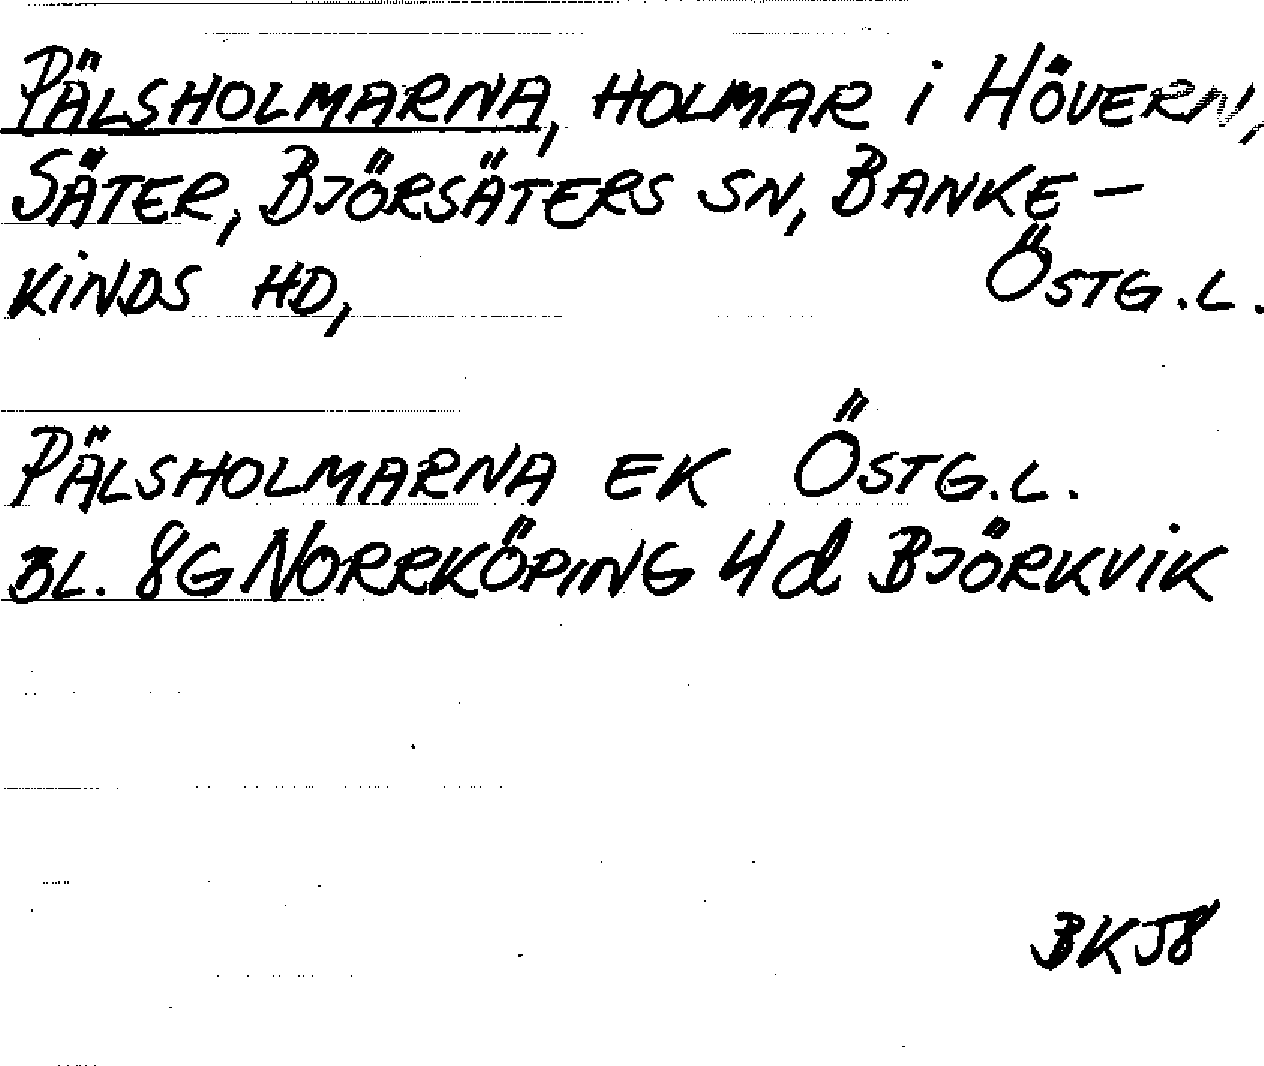 PÄLSHOLMARNA, HOLMAR i HÖVERN,
SÄTER, BJÖRSÄTERS SN, BANKE-
KINDS HD, ÖSTG.L.
PÄLSHOLMARNA EK ÖSTG.L.
BL. 8G NORRKÖPING 4d BJÖRKVIK